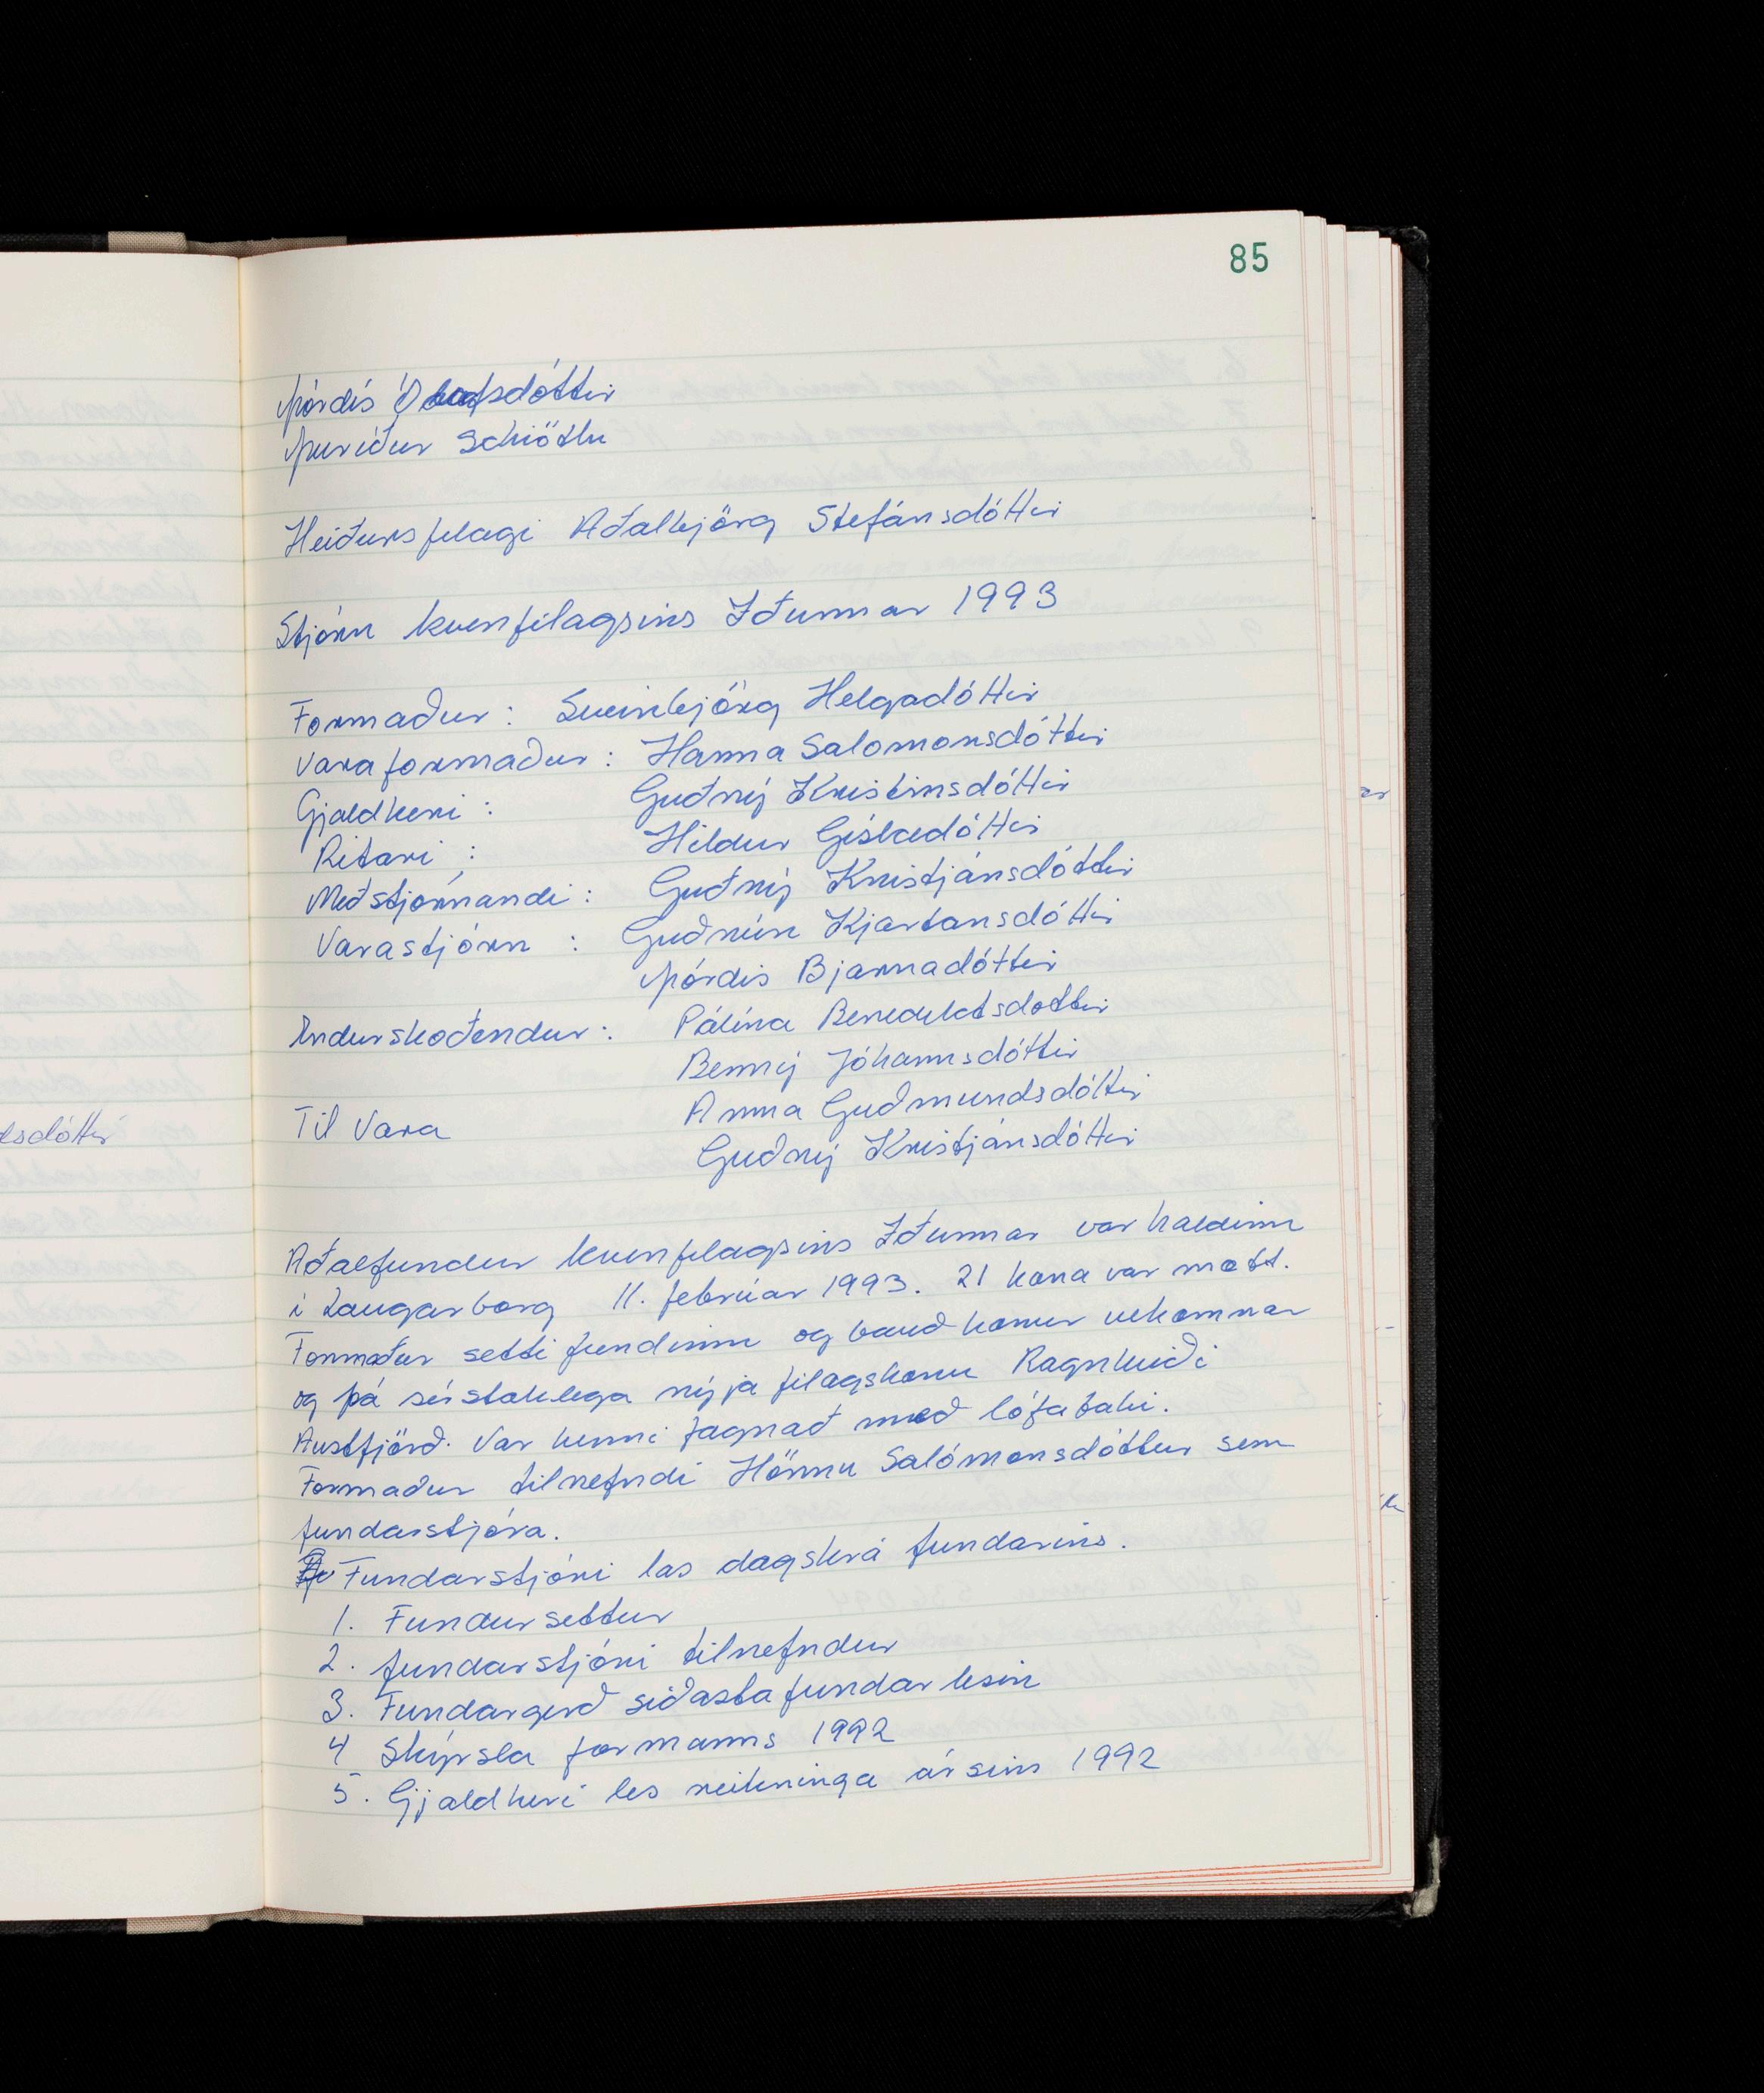 85
Þórdís Ólafsdóttir
Þuríður Schiöth
Heiðursfelagi Aðalbjörg Stefánsdóttir
Stjórn kvenfélagsins Iðunnar 1993
Formaður: Sveinbjörg Helgadóttir
Varaformaður: Hanna Salomonsdóttir
Gjaldkeri: Guðný Kristinsdóttir
Ritari: Hildur Gísladóttir
Meðstjórnandi: Guðný Kristjánsdóttir
Varastjórn: Guðrún Kjartansdóttir
Þórdis Bjarnadóttir
Endurskoðendur: Pálína Benediktsdottir
Benný Jóhannsdóttir
Til Vara Anna Guðmundsdóttir
Guðný Kristjánsdóttir
dsdóttir
Aðalfundur kvenfélagsins Iðunnar var haldinn
í Laugarborg 11. febrúar 1993. 21 kona var mætt.
Formaður setti fundinn og bauð konur velkomnar
og þá sérstaklega nýja félagskonu Ragnheiði
Austfjörð. Var henni fagnað með lófataki.
Formaður tilnefndi Hönnu Salómonsdóttur sem
fundarstjóra.
Fundarstjóri las dagskrá fundarins.
1. Fundur settur
2. fundarstjóri tilnefndur
3. Fundargerð síðasta fundar lesin
4 Skýrsla formanns 1992
5. Gjaldkeri les reikninga ársins 1992